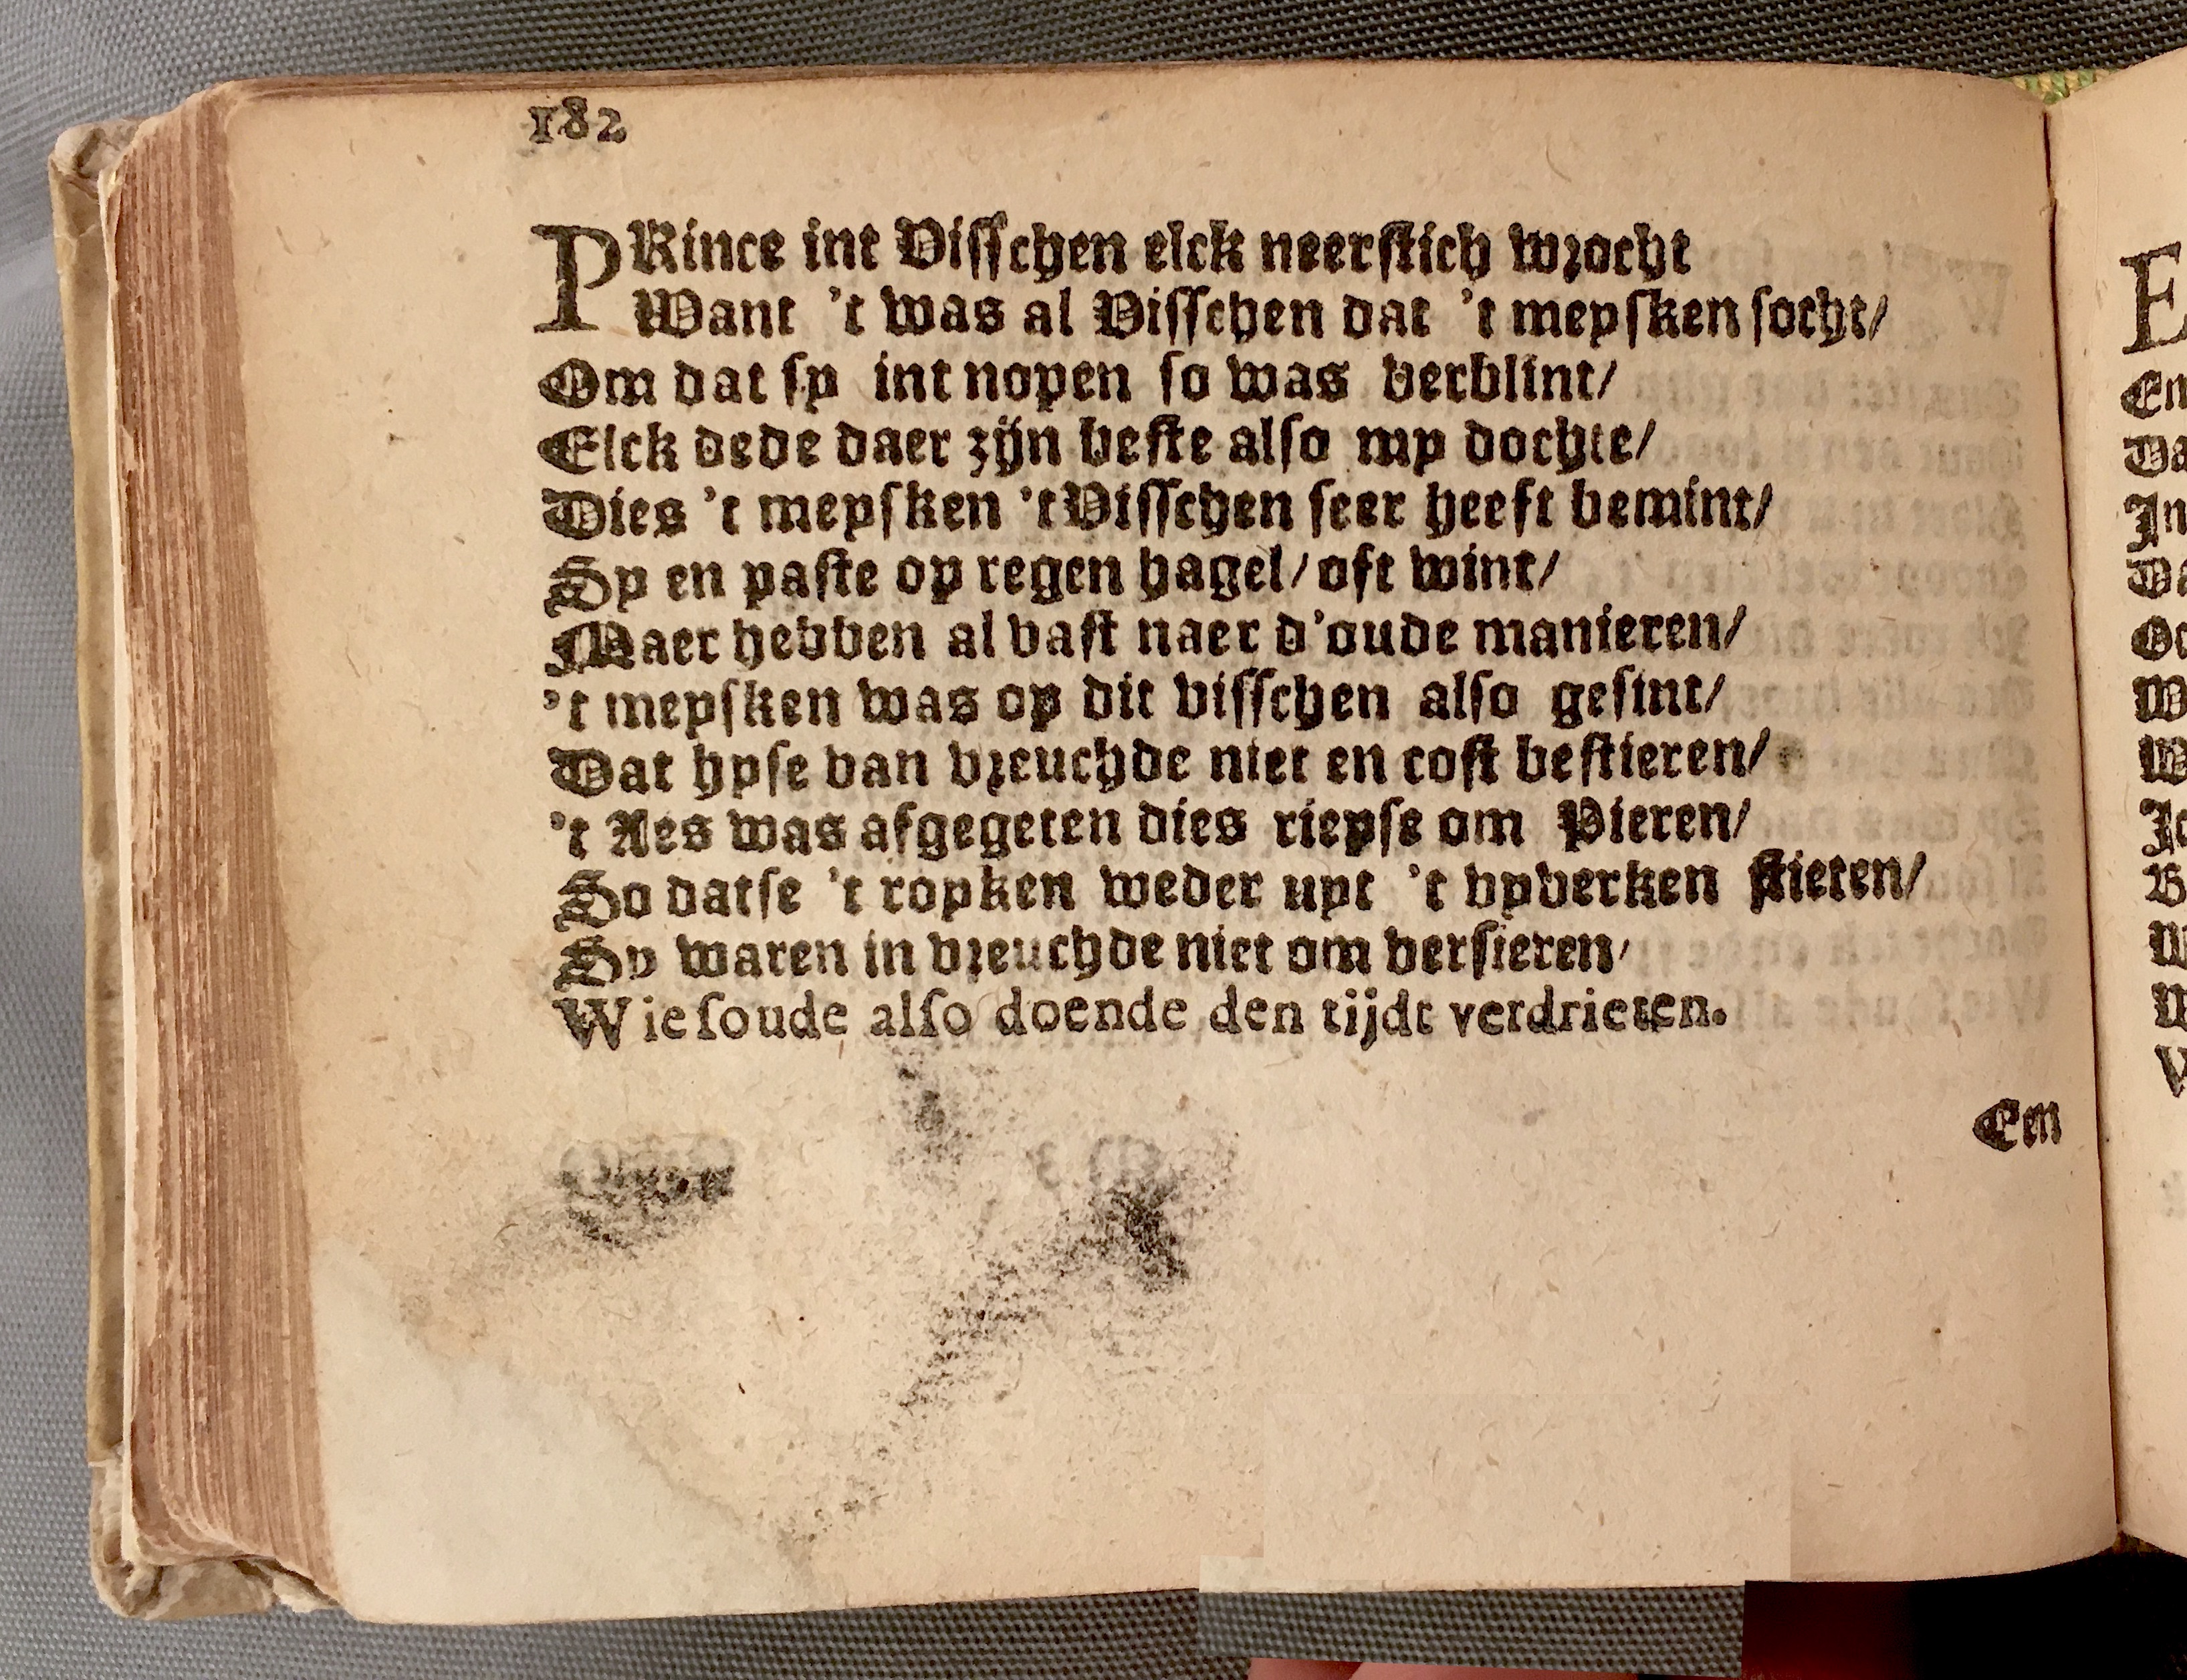 182
PRince int Visschen elck neerstich wrocht
Want 't was al Visschen dat 't meysken socht/
Om dat sy int nopen so was verblint/
Elck dede daer zijn beste also my dochte/
Dies 't meysken 't Visschen seer heeft bemint/
Sy en paste op regen hagel/ oft wint/
Maer hebben al vast naer d'oude manieren/
't meysken was op dit visschen also gesint/
Dat hyse van vreuchde niet en cost bestieren/
't Aes was afgegeten dies riepse om Pieren/
So datse 't ropken weder uyt 't vyverken stieten/
Sy waren in vreuchde niet om versieren/
Wie soude also doende den tijdt verdrieten.
Em
E
En
Da
In
Da
W
W
W